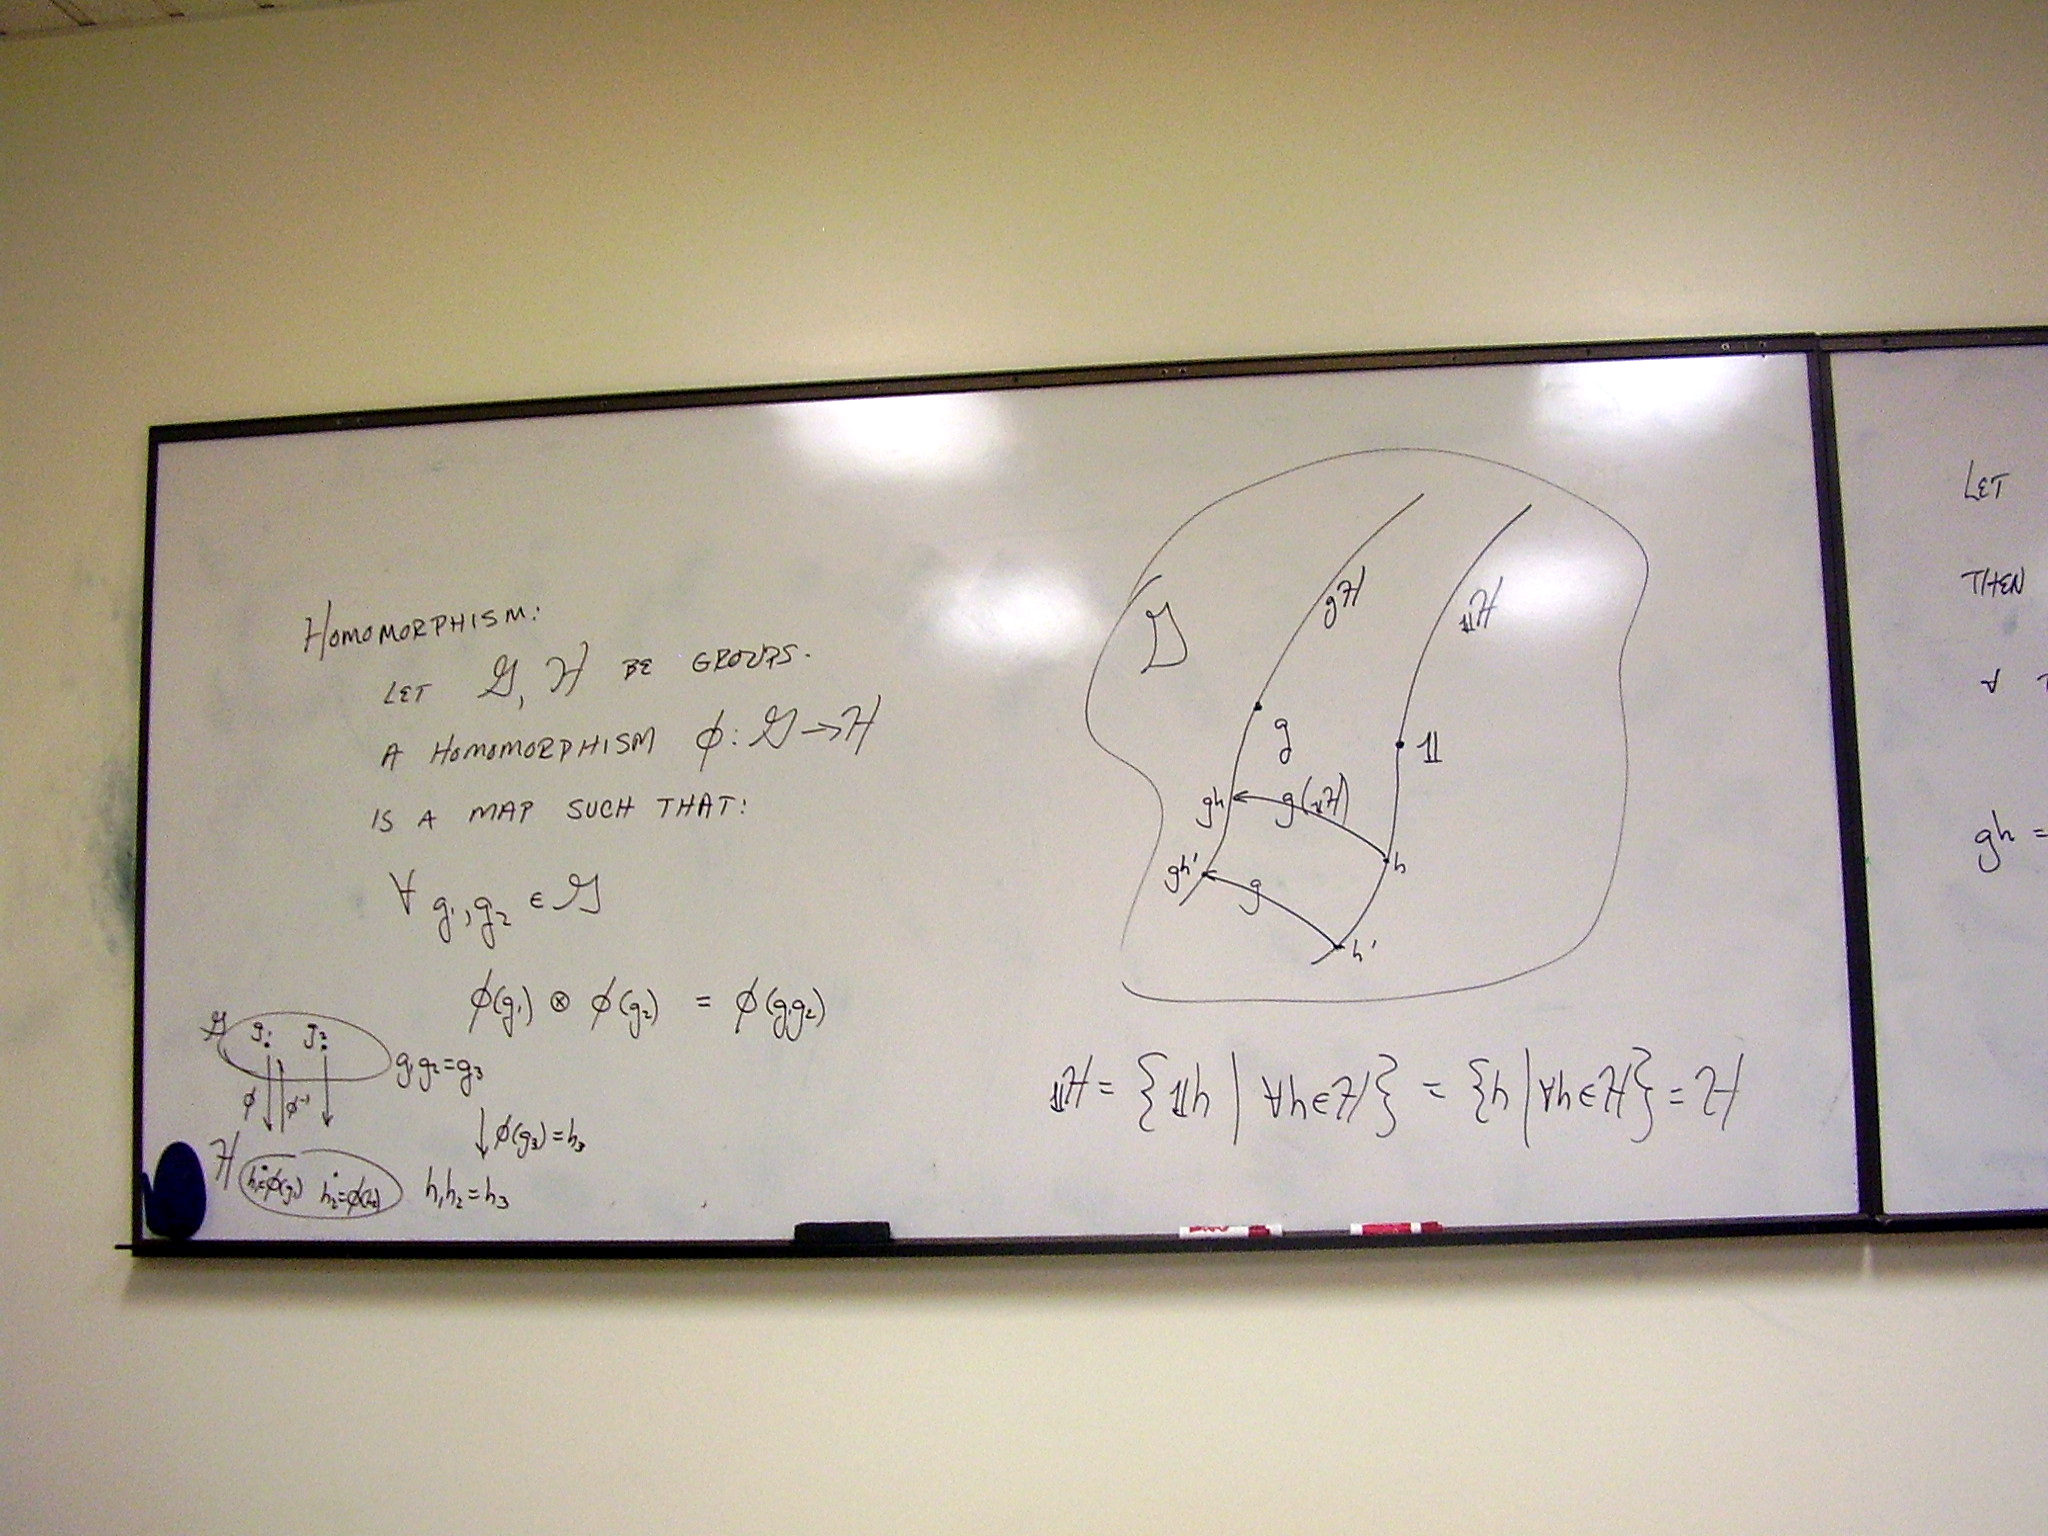 HOMOMORPHISM:
LET 𝒢, ℋ BE GROUPS.
A HOMOMORPHISM ϕ: 𝒢 → ℋ
IS A MAP SUCH THAT:
∀ g₁, g₂ ∈ 𝒢
ϕ(g₁) ⊗ ϕ(g₂) = ϕ(g₁g₂)
𝒢 g₁ g₂
g₁g₂ = g₃
ϕ ϕ⁻¹
↓ ϕ(g₃) = h₃
ℋ h₁=ϕ(g₁) h₂=ϕ(h₂)
h₁h₂ = h₃
𝒢
gℋ
𝟙ℋ
g
𝟙
gh
g(𝟙ℋ)
h
gh'
g
h'
𝟙ℋ = {𝟙h | ∀h∈ℋ} = {h | ∀h∈ℋ} = ℋ
LET
THEN
∀
gh =